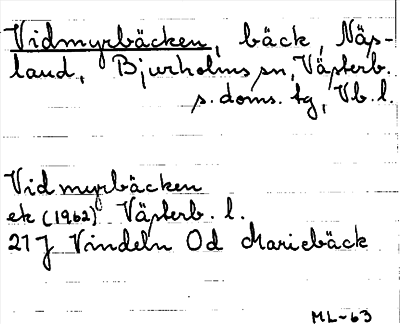 Vidmyrbäcken, bäck, Näs-
land, Bjurholms sn, Västerb.
s. doms. tg, Vb. l.
Vidmyrbäcken
ek (1962) Västerb. l.
21 J Vindeln 0d Mariebäck
ML-63